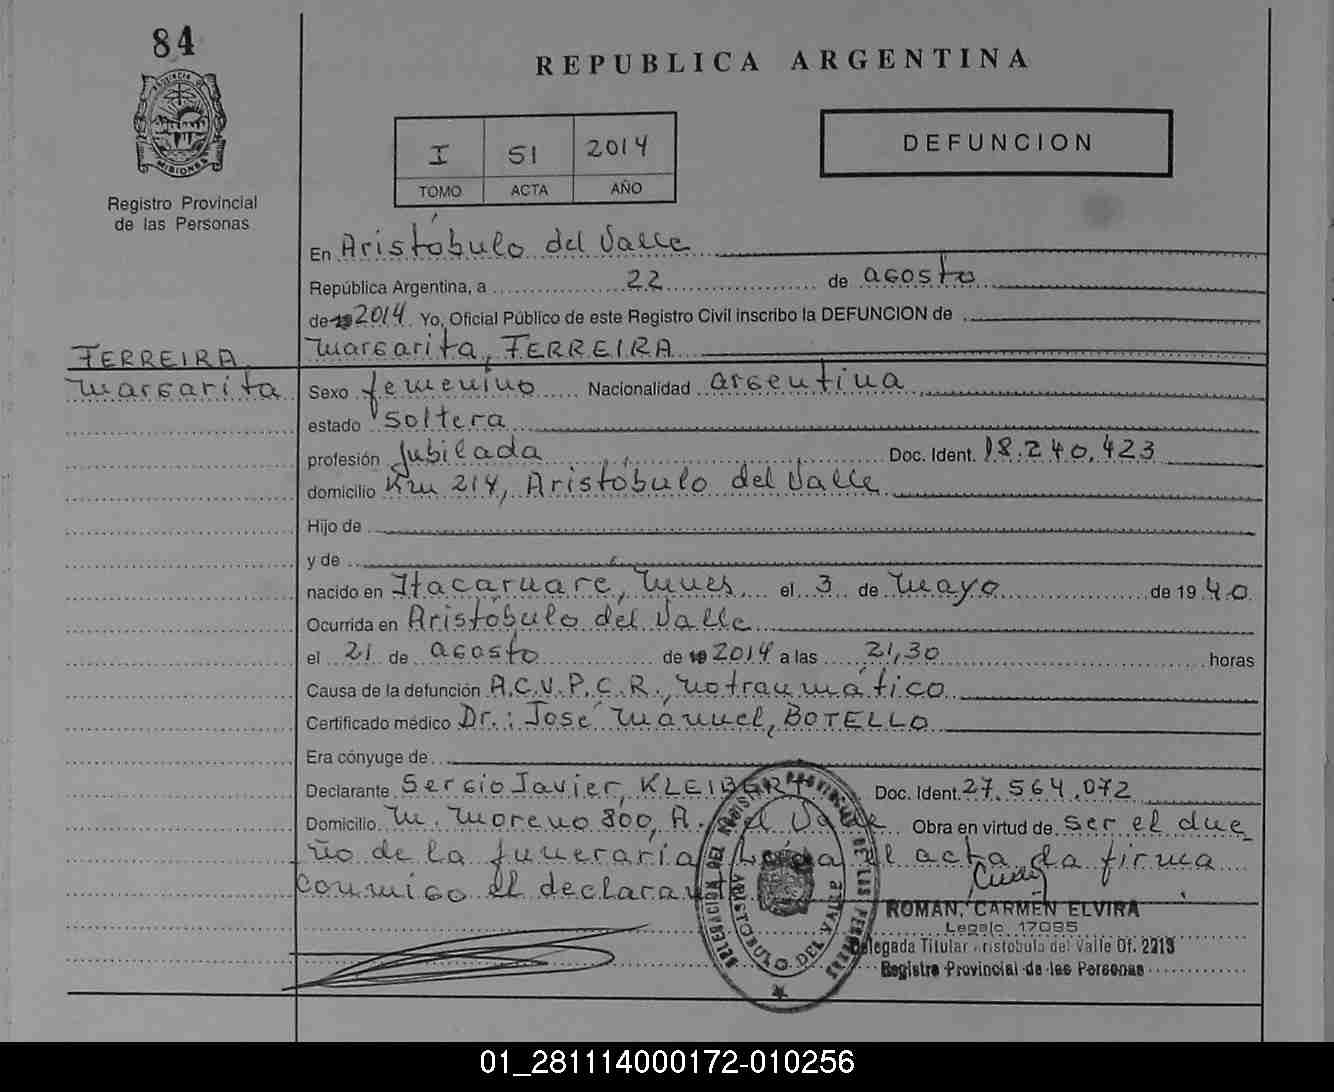 84
REPUBLICA ARGENTINA
PROVINCIA DE
MISIONES
Registro Provincial
de las Personas
I 51 2014
TOMO ACTA AÑO
DEFUNCION
En Aristóbulo del Valle
República Argentina, a 22 de agosto
de 19 2014. Yo, Oficial Público de este Registro Civil inscribo la DEFUNCION de
Margarita, FERREIRA
FERREIRA
Margarita
Sexo femenino Nacionalidad argentina
estado soltera
profesión Jubilada Doc. Ident. 18.240.423
domicilio Km 214, Aristóbulo del Valle
Hijo de
y de
nacido en Itacaruaré, Mnes el 3 de Mayo de 1940
Ocurrida en Aristóbulo del Valle
el 21 de agosto de 19 2014 a las 21,30 horas
Causa de la defunción A.C.V.P.C.R., no traumático
Certificado médico Dr.: José Manuel, BOTELLO
Era cónyuge de
Declarante Sergio Javier, KLEIBERT Doc. Ident. 27.564.072
Domicilio M. Moreno 800, A. del Valle Obra en virtud de ser el due
ño de la funeraria Leída el acta da firma
conmigo el declarante
DELEGACION DEL REGISTRO PROVINCIAL DE LAS PERSONAS
ARISTOBULO DEL VALLE
ROMAN, CARMEN ELVIRA
Legajo 17095
Delegada Titular Aristobulo del Valle Of. 2213
Registro Provincial de las Personas
01_281114000172-010256